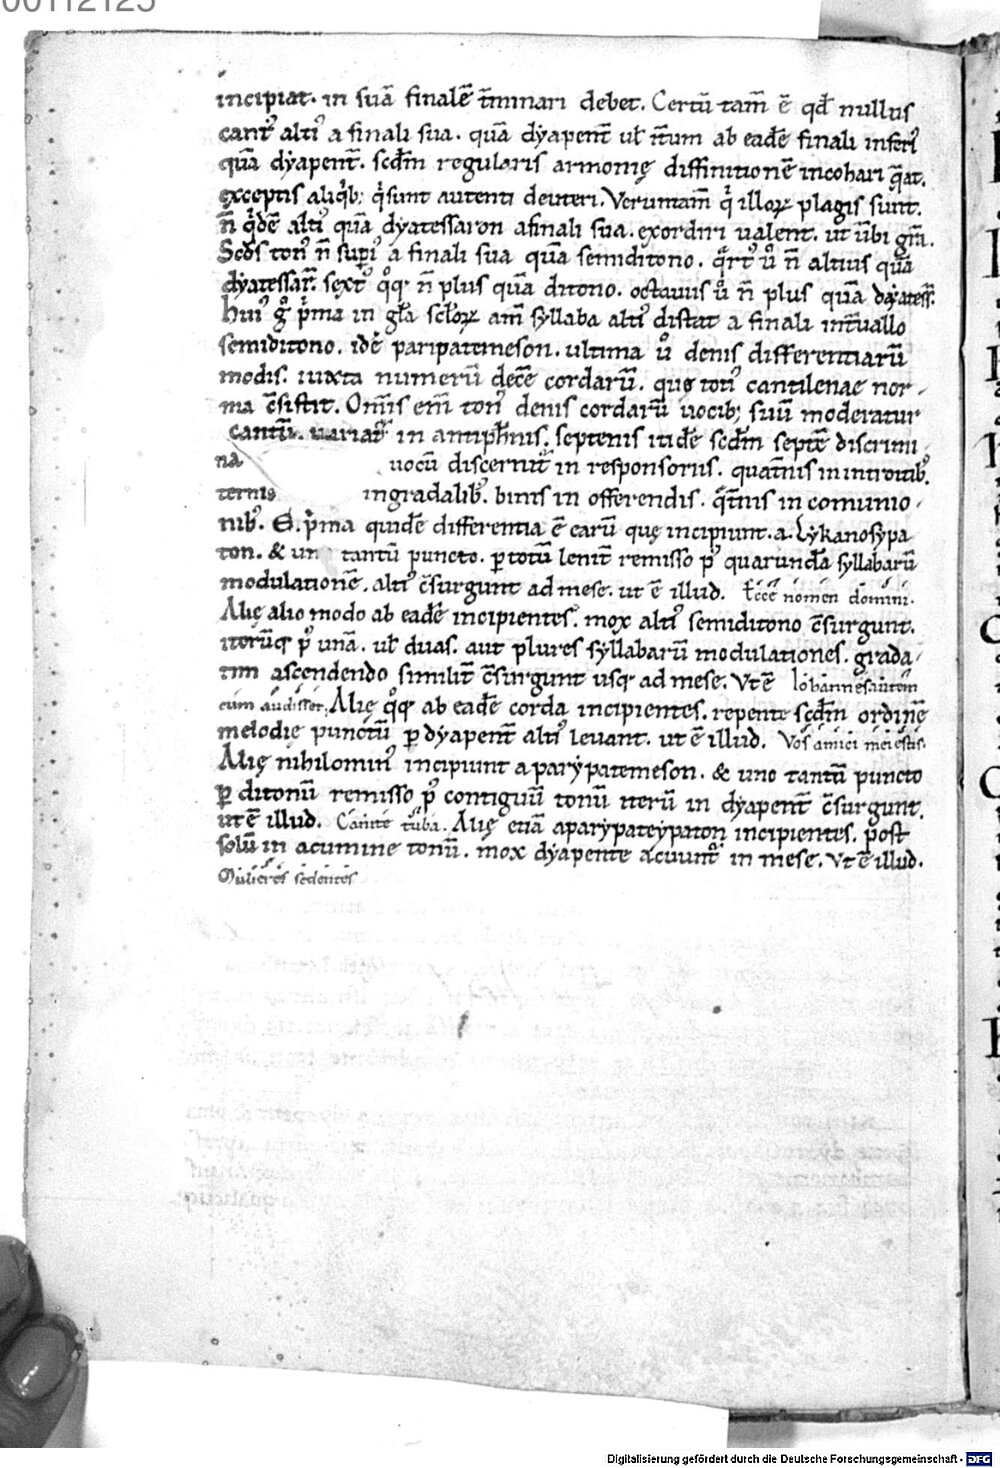 00112125
incipiat. in suā finalē t̄minari debet. Certū tam̄ ē qd̄ nullus
cant᷒ alti᷒ a finali sua. quā dẏapent̄ ul̄ t̄tum ab eadē finali inferi᷒
quā dẏapent̄. scd̄m regularis armonię diffinitionē incohari q̄at.
exceptis aliqͥb; qͥ sunt autenti deuteri. Verumtam̄ qͥ illoꝝ plagis sunt.
n̄ qͥdē alti᷒ quā dẏatessaron a finali sua. exordiri ualent. ut ūbi gr̄a.
Scd̄s ton᷒ n̄ supi᷒ a finali sua quā semiditono. q̄rt᷒ ů n̄ altius quā
dẏatessar̄. sext᷒ qͦq n̄ plus quā ditono. octauus ů n̄ plus quā dẏatess̄.
hui᷒ gͦ pͥma in gl̄a scl̄oꝝ am̄ syllaba alti᷒ distat a finali int̄uallo
semiditono. idē paripatemeson. ultima ů denis differentiarū
modis. iuxta numerū decē cordarū. quę toti᷒ cantilenae nor-
ma c̄sistit. Om̄is em̄ ton᷒ denis cordarū uocib; suū moderatur
cantū. uariat᷒ in antiph̄nis. septenis itidē scd̄m septē discrimi
na uocū discernit᷒ in responsoriis. quat̄nis in introitib᷒.
ternis in gradalib᷒. binis in offerendis. q̄t̄nis in comunio-
nib᷒. Et pͥma quidē differentia ē earū quę incipiunt. a. Lẏkanosẏpa
ton. & un tantū puncto. ꝑ totū lenit̄ remisso p᷒ quarundā syllabarū
modulationē. alti᷒ c̄surgunt ad mese. ut ē illud. Ecce nomen domini.
Alię alio modo ab eadē incipientes. mox alti᷒ semiditono c̄surgunt.
iterūq p᷒ unā. ul̄ duas. aut plures syllabarū modulationes. grada-
tim ascendendo similit̄ c̄surgunt usq ad mese. Vt ē Iohannes autem
cum audisset. Alię qͦq ab eadē corda incipientes. repente scd̄m ordinē
melodię punctū ꝑ dẏapent̄ alti᷒ leuant. ut ē illud. Vos amici mei estis.
Alię nihilomin᷒ incipiunt a parẏpatemeson. & uno tantū puncto
ꝑ ditonū remisso p᷒ contiguū tonū iterū in dẏapent̄ c̄surgunt.
ut ē illud. Canite tuba. Alię etiā a parẏpateẏpaton incipientes. post
solū in acumine tonū. mox dẏapente acuunt᷒ in mese. Vt ē illud.
Mulieres sedentes
Digitalisierung gefördert durch die Deutsche Forschungsgemeinschaft - DFG